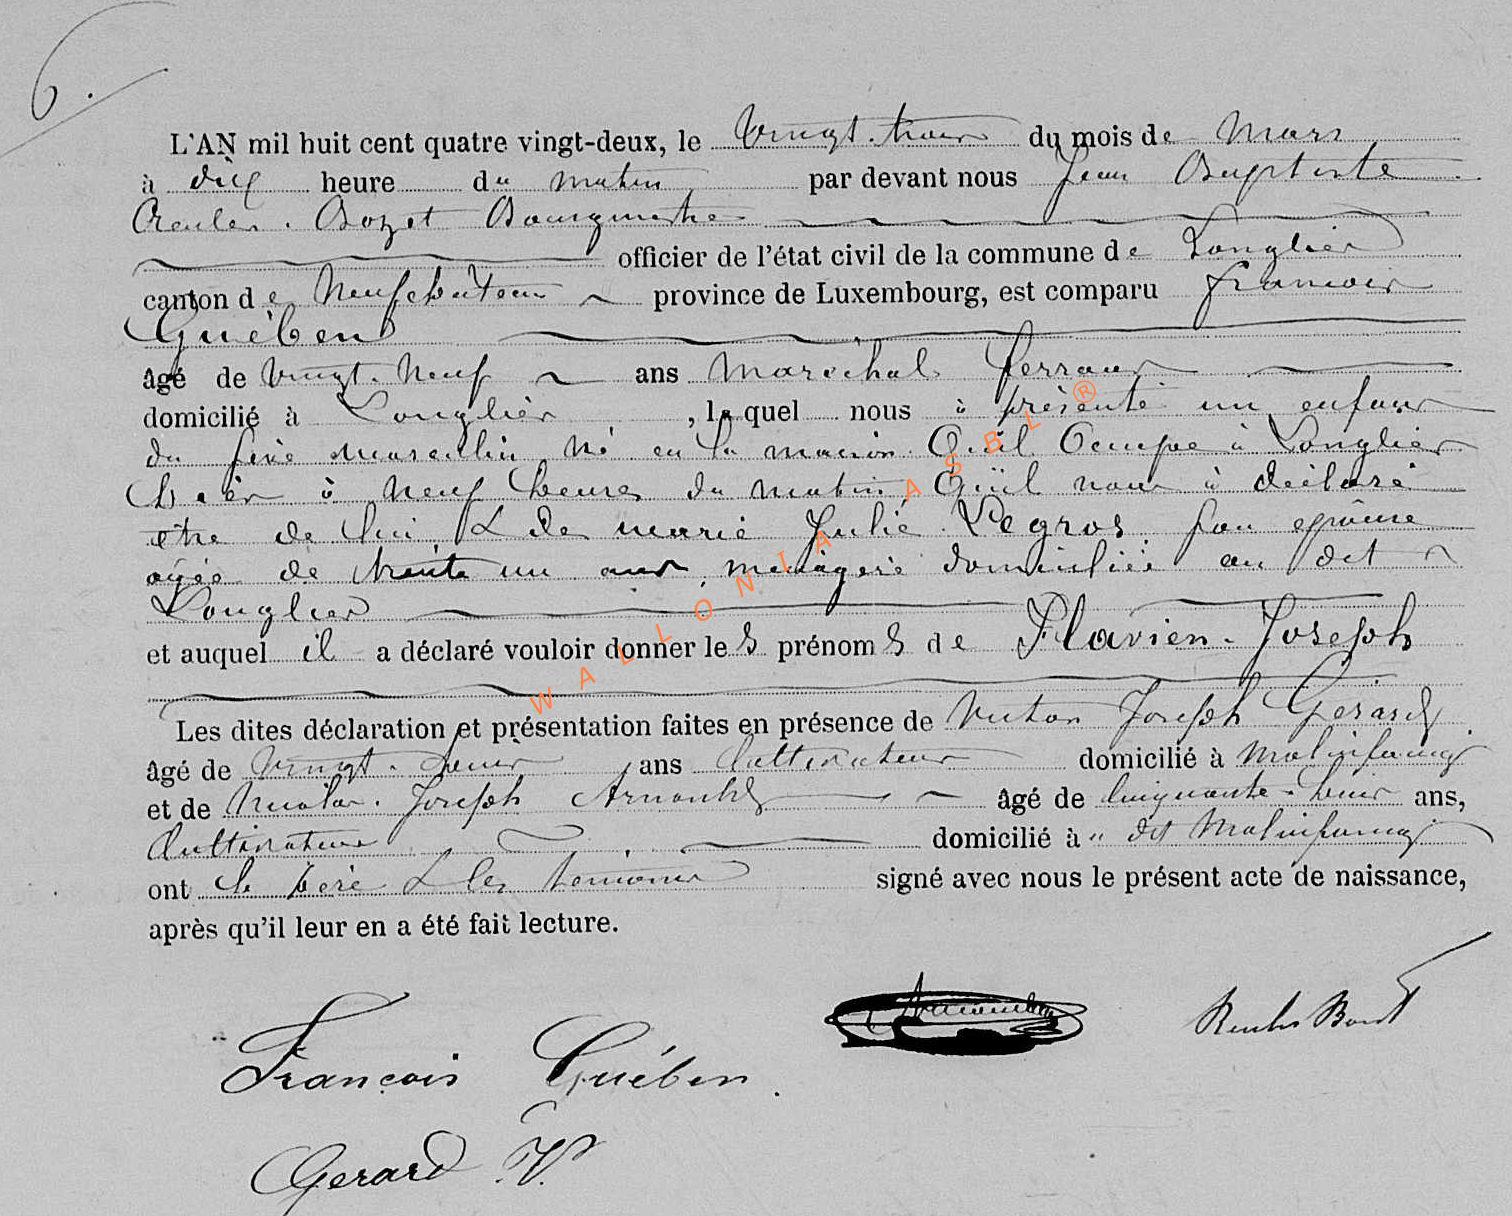 6.
L'AN mil huit cent quatre vingt-deux, le Vingt-trois du mois de Mars
à dix heure du matin par devant nous Jean Baptiste
Reuler. Bozet Bourgmestre
officier de l'état civil de la commune de Longlier
canton de Neufchateau province de Luxembourg, est comparu Francois
Guében
âgé de vingt-Neuf ans Maréchal ferrant
domicilié à Longlier, lequel nous à présenté un enfant
du sexe masculin né en la maison Qu'il Occupe à Longlier
hier à Neuf heures du matin Qu'il nous à déclaré
etre de lui & de marie Julie Legros. son epouse
agée de trente un ans, menagere domiciliée au dit
Longlier
et auquel il a déclaré vouloir donner les prénoms de Flavien-Joseph
Les dites déclaration et présentation faites en présence de Victor Joseph Gerard
âgé de Vingt- ans Cultivateur domicilié à Molinfaing
et de Nicolas. Joseph âgé de Cinquante- ans,
Cultivateur domicilié à dit Molinfaing
ont le père & les témoins signé avec nous le présent acte de naissance,
après qu'il leur en a été fait lecture.
François Guében.
Gerard V.
WALLONIA ASBL ®